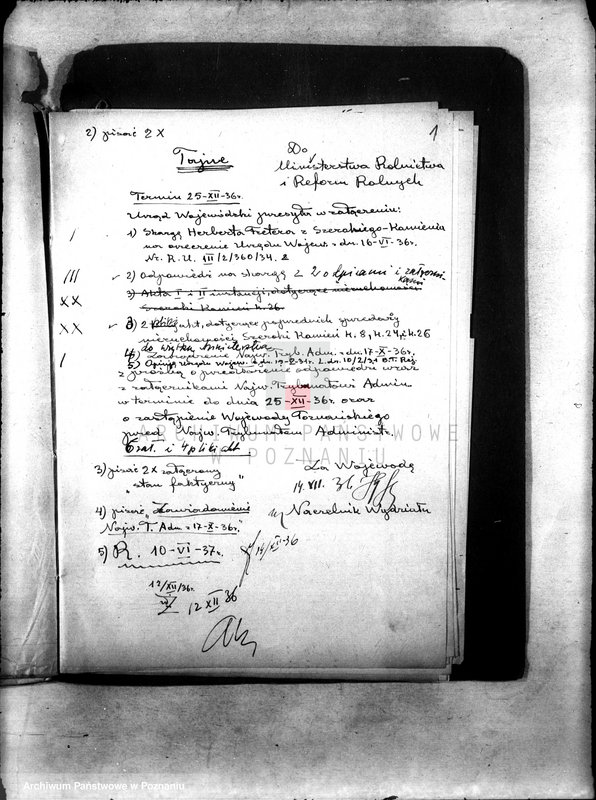 2) pisać 2 X
1
Tajne
Do
Ministerstwa Rolnictwa
i Reform Rolnych
Termin 25-XII-36r.
Urząd Wojewódzki przesyła w załączeniu:
1) Skargę Herberta z Szerokiego-Kamienia
na orzeczenie Urzędu Wojew. z dn. 16-VI-36r.
Nr. R.U. III/2/360/34. 2
2) Odpowiedź na skargę z 2 odpisami i
3) Akta I i II instancji, dotyczące nieruchomości
Szeroki Kamień k. 26
3) 2 akt, dotyczące poprzednich sprzedaży
nieruchomości Szeroki Kamień k. 8, k. 24, i k. 26
do użytku
4) Zarządzenie Najw. Tryb. Adm. z dn. 17-X-36r.
5) Opinję Urzędu Wojew.
z prośbą o przedłożenie odpowiedzi wraz
z załącznikami Najw. Trybunałowi Admin.
w terminie do dnia 25-XII-36r. oraz
o zastąpienie Wojewody Poznańskiego
przed Najw. Trybunałem Administr.
i 4 plik akt
3) pisać 2 X załączony
"stan faktyczny"
Za Wojewodę
14. VII. 36
Naczelnik Wydziału
4) pisać "Zawiadomienie
Najw. T. Adm. z 17-X-36r."
5) R. 10-VI-37r.
14/XII-36
12/XII/36r.
12 XII 36
ARCHIWUM PAŃSTWOWE
W POZNANIU
Archiwum Państwowe w Poznaniu